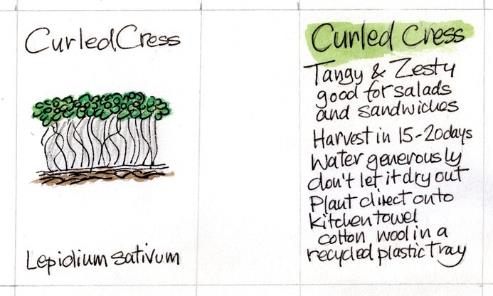 Curled Cress
Lepidium sativum
Curled Cress
Tangy & Zesty
good for salads
and sandwiches
Harvest in 15-20days
Water generously
don't let it dry out
Plant direct onto
kitchen towel
cotton wool in a
recycled plastic tray